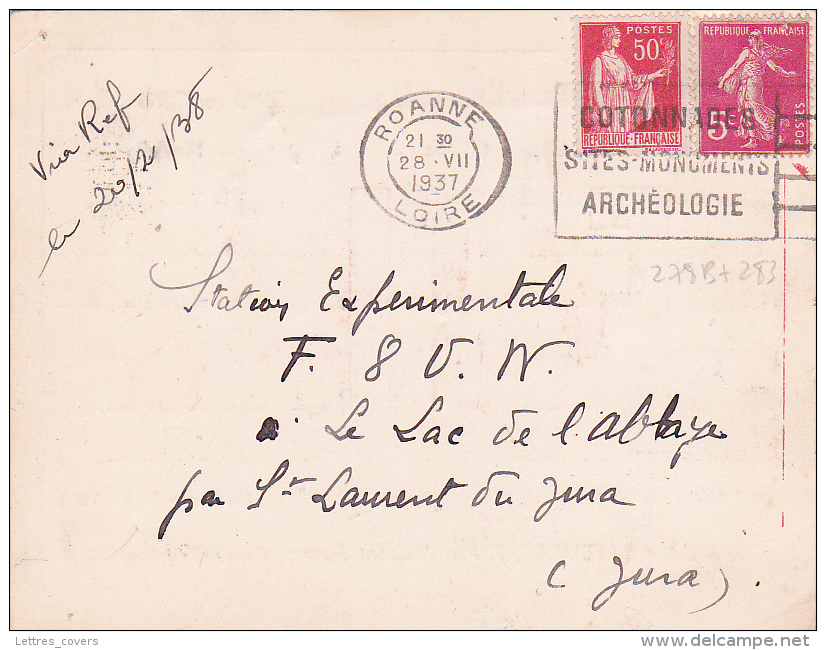 POSTES
50c
REPUBLIQUE-FRANÇAISE
REPUBLIQUE FRANÇAISE
5c
POSTES
ROANNE
21 30
28·VII
1937
LOIRE
COTONNADES
SITES-MONUMENTS
ARCHÉOLOGIE
278B+283
Via Ref
le 20/2/38
Station Experimentale
F. 8 V. W.
à Le Lac de l'abbaye
par St Laurent du Jura
(Jura)
Lettres_covers
delcampe.net